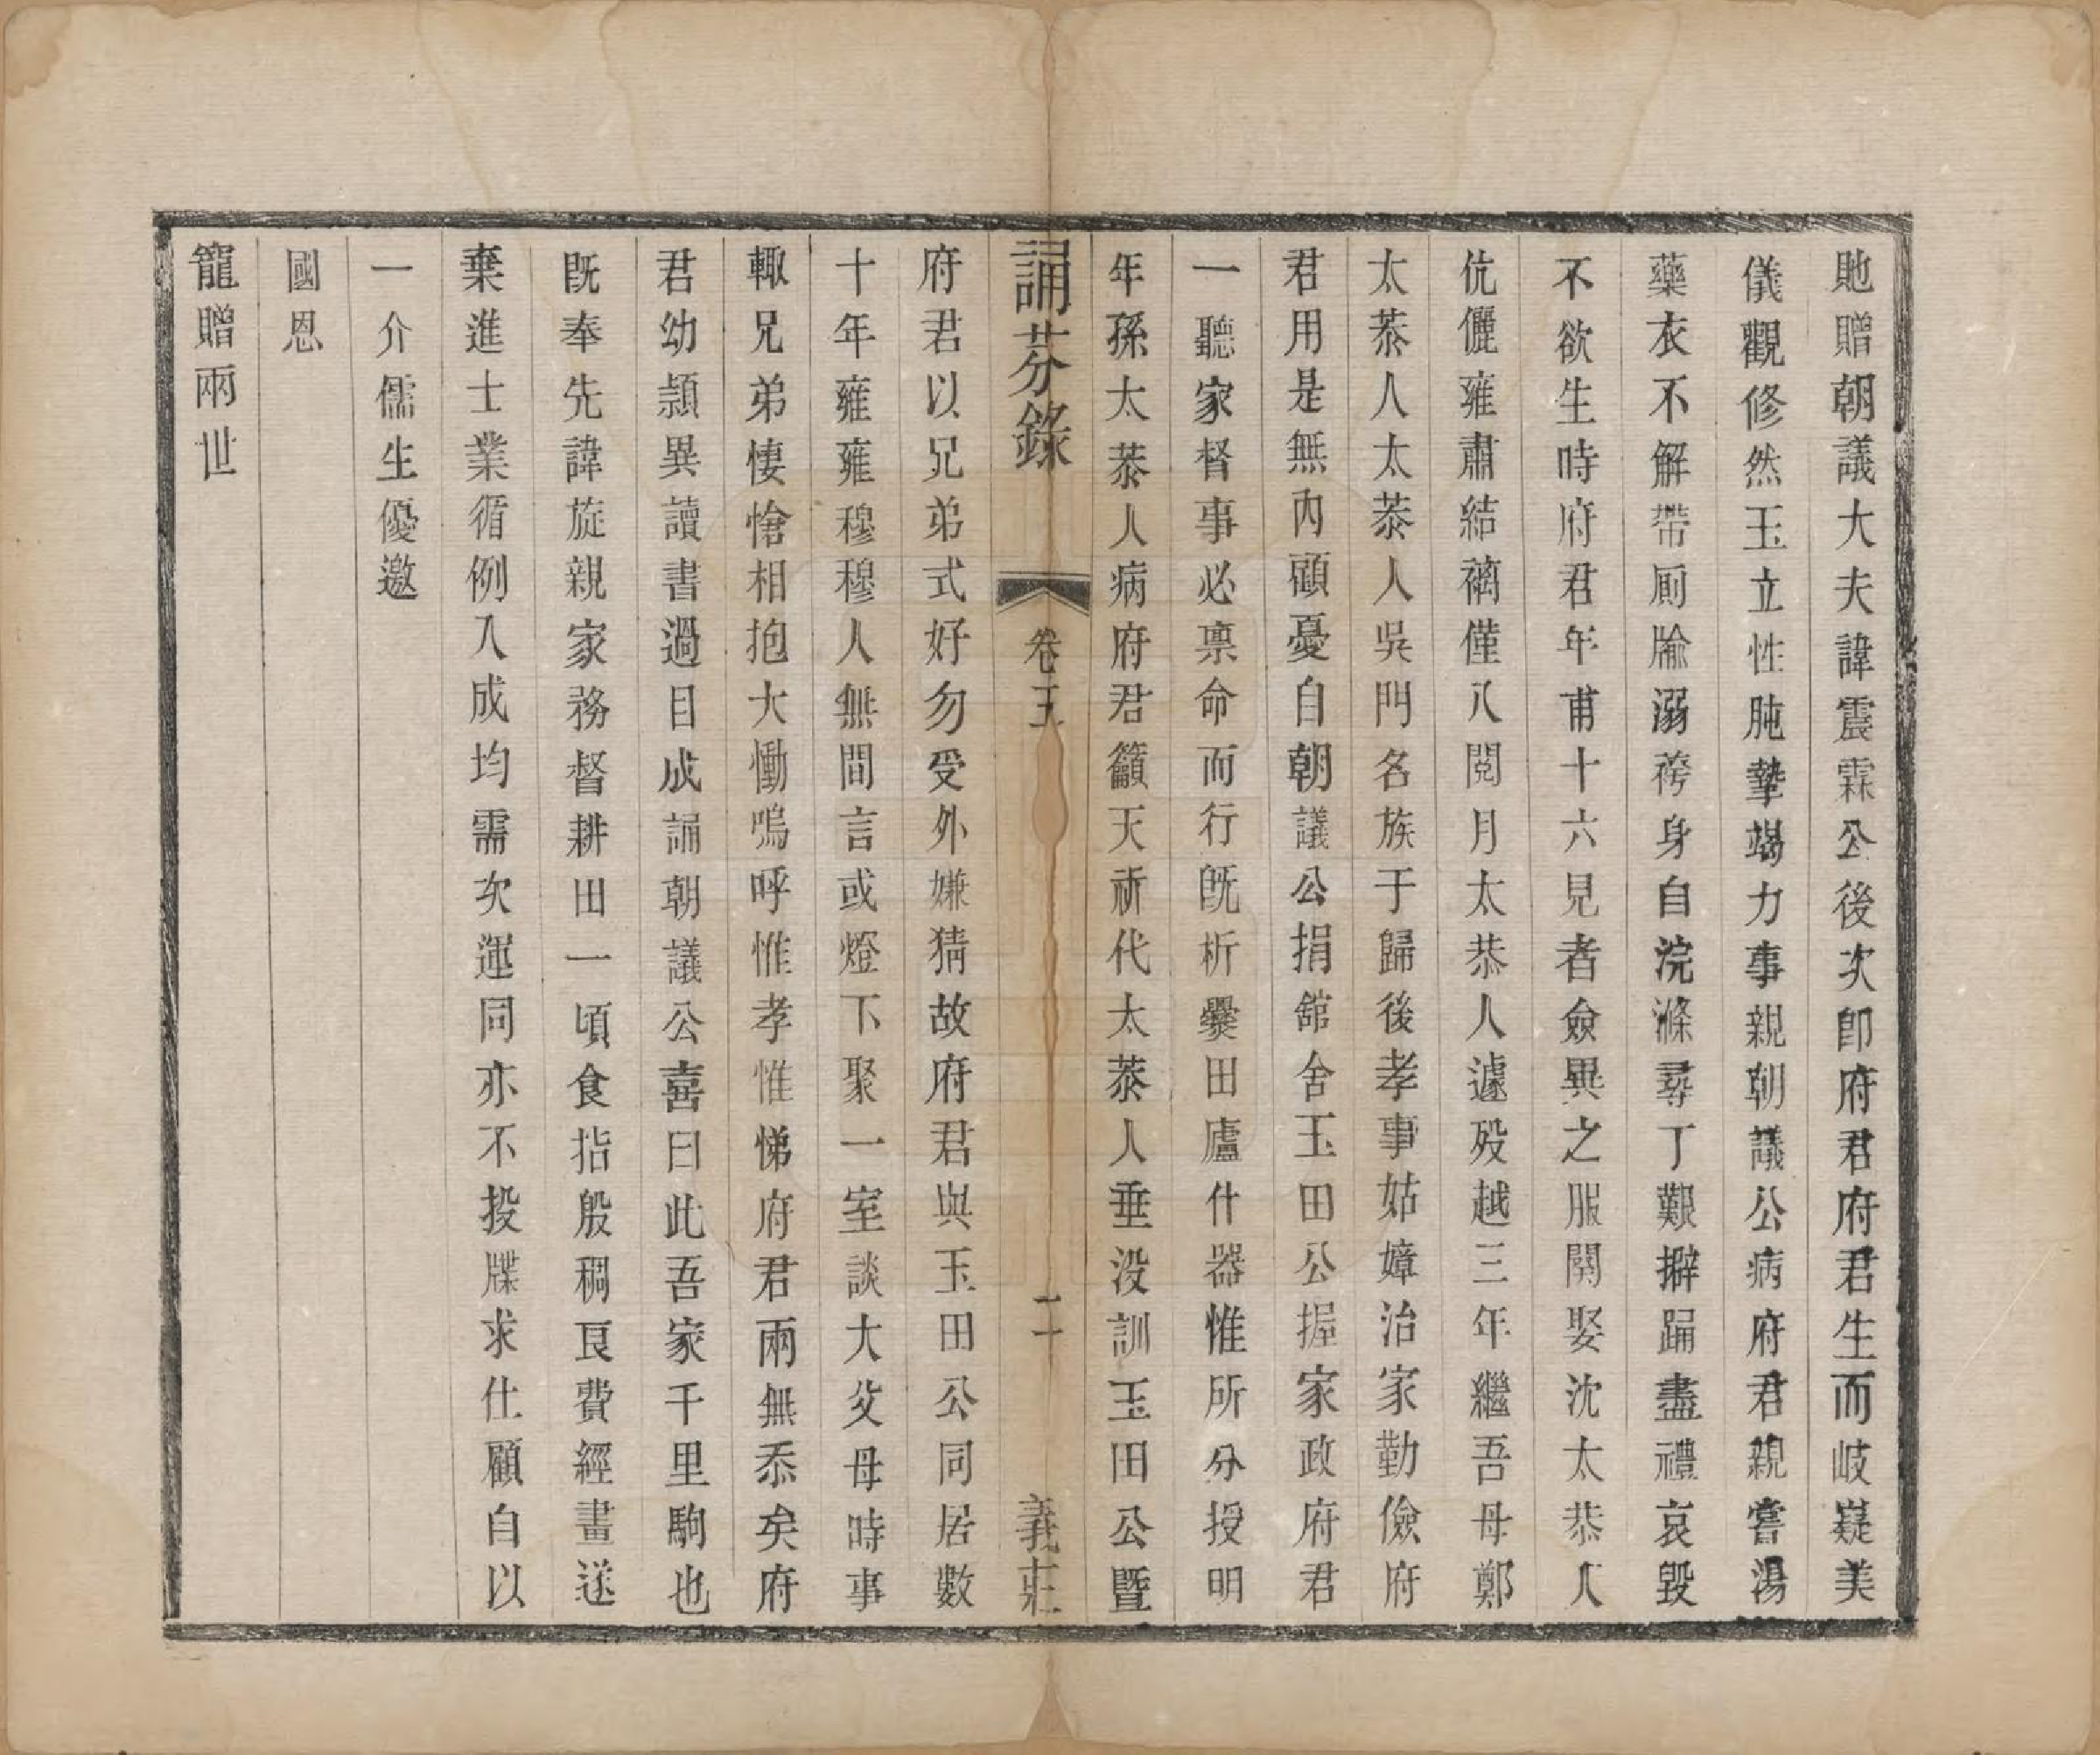 貤贈朝議大夫諱震霖公後次卽府君府君生而岐嶷美
儀觀修然玉立性肫摯竭力事親朝議公病府君親嘗湯
藥衣不解帶厠牏溺袴身自浣滌尋丁艱擗踊盡禮哀毀
不欲生時府君年甫十六見者僉異之服闋娶沈太恭人
伉儷雍肅結褵僅八閱月太恭人遽歿越三年繼吾母鄭
太恭人太恭人吳門名族于歸後孝事姑嫜治家勤儉府
君用是無內顧憂自朝議公捐舘舍玉田公握家政府君
一聽家督事必禀命而行旣析爨田廬什器惟所分授明
年孫太恭人病府君籲天祈代太恭人垂没訓玉田公暨
誦芬錄 卷五 二十 義莊
府君以兄弟式好勿受外嫌猜故府君與玉田公同居數
十年雍雍穆穆人無間言或燈下聚一室談大父母時事
輙兄弟悽愴相抱大慟嗚呼惟孝惟悌府君兩無忝矣府
君幼頴異讀書過目成誦朝議公喜曰此吾家千里駒也
旣奉先諱旋親家務督耕田一頃食指殷稠良費經畫遂
棄進士業循例入成均需次運同亦不投牒求仕顧自以
一介儒生優邀
國恩
寵贈兩世